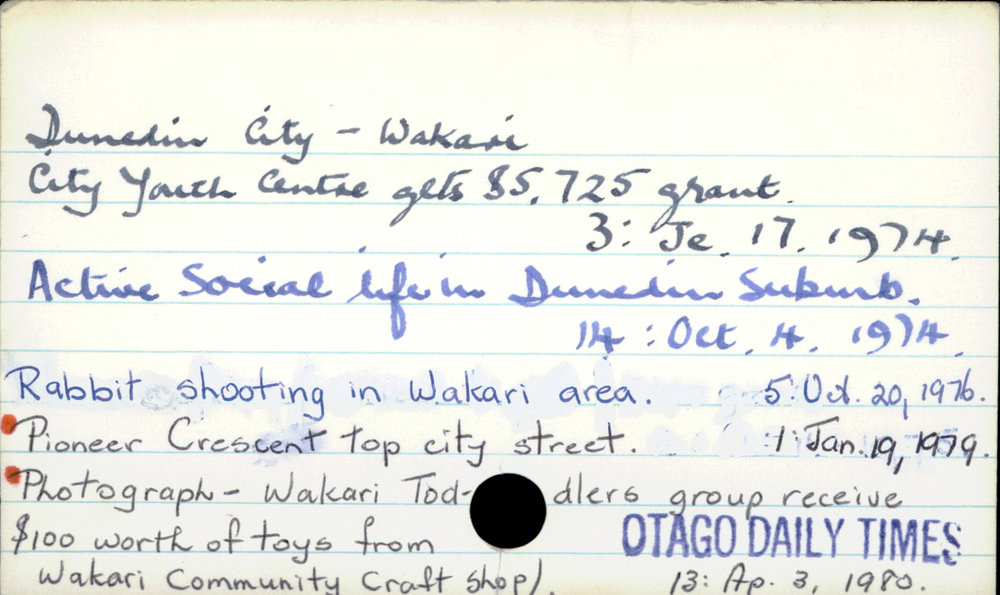 Dunedin City - Wakari
City Youth Centre gets $5,725 grant.
3: Je. 17. 1974.
Active Social life in Dunedin Suburb.
14: Oct. 4. 1974.
Rabbit shooting in Wakari area. 5: Oct. 20, 1976.
Pioneer Crescent top city street. 1: Jan. 19, 1979.
Photograph - Wakari Tod-dlers group receive
$100 worth of toys from OTAGO DAILY TIMES
Wakari Community Craft Shop/. 13: Ap. 3, 1980.